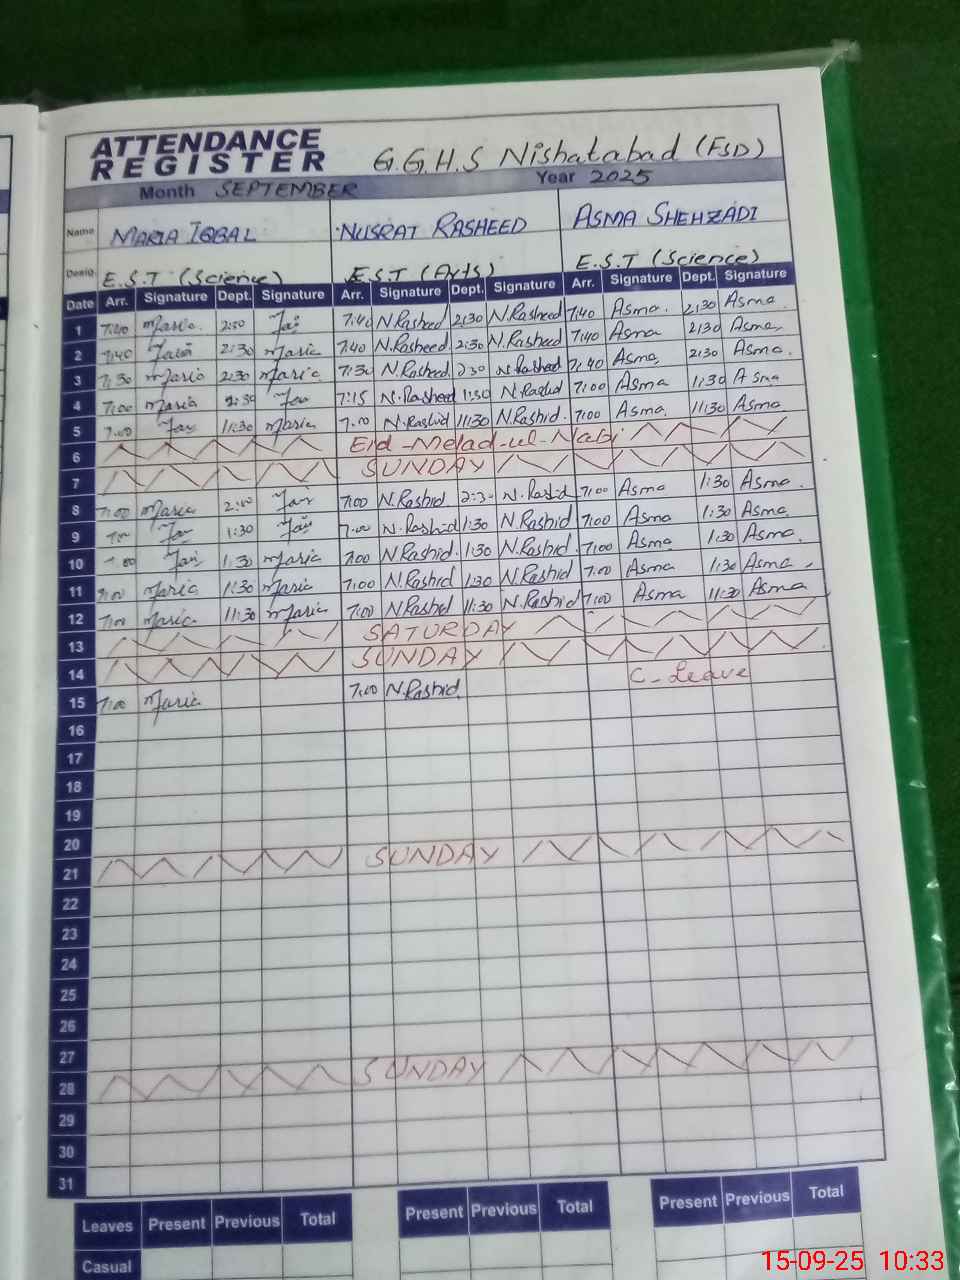 ATTENDANCE
REGISTER G.G.H.S Nishatabad (FSD)
Month SEPTEMBER Year 2025
Name MARIA IQBAL NUSRAT RASHEED ASMA SHEHZADI
Desig. E.S.T (Science) E.S.T (Arts) E.S.T (Science)
Date Arr. Signature Dept. Signature Arr. Signature Dept. Signature Arr. Signature Dept. Signature
1 7:40 Maria 2:30 7:40 N.Rasheed 2:30 N.Rasheed 7:40 Asma 2:30 Asma
2 7:40 2:30 Maria 7:40 N.Rasheed 2:30 N.Rasheed 7:40 Asma 2:30 Asma
3 7:30 Maria 2:30 Maria 7:30 N.Rasheed 2:30 N.Rasheed 7:40 Asma 2:30 Asma
4 7:00 Maria 7:15 N.Rasheed 1:30 N.Rashid 7:00 Asma 1:30 Asma
5 7:00 11:30 Maria 7:00 N.Rashid 11:30 N.Rashid 7:00 Asma 11:30 Asma
6 Eid-Melad-ul-Nabi
7 SUNDAY
8 7:00 Maria 7:00 N.Rashid 2:30 N.Rashid 7:00 Asma 1:30 Asma
9 7:00 1:30 7:00 N.Rashid 1:30 N.Rashid 7:00 Asma 1:30 Asma
10 7:00 1:30 Maria 7:00 N.Rashid 1:30 N.Rashid 7:00 Asma 1:30 Asma
11 7:00 Maria 1:30 Maria 7:00 N.Rashid 1:30 N.Rashid 7:00 Asma 1:30 Asma
12 7:00 Maria 11:30 Maria 7:00 N.Rashid 11:30 N.Rashid 7:00 Asma 11:30 Asma
13 SATURDAY
14 SUNDAY
15 7:00 Maria 7:00 N.Rashid C-Leave
16
17
18
19
20
21 SUNDAY
22
23
24
25
26
27
28 SUNDAY
29
30
31
Leaves Present Previous Total Present Previous Total Present Previous Total
Casual
15-09-25 10:33